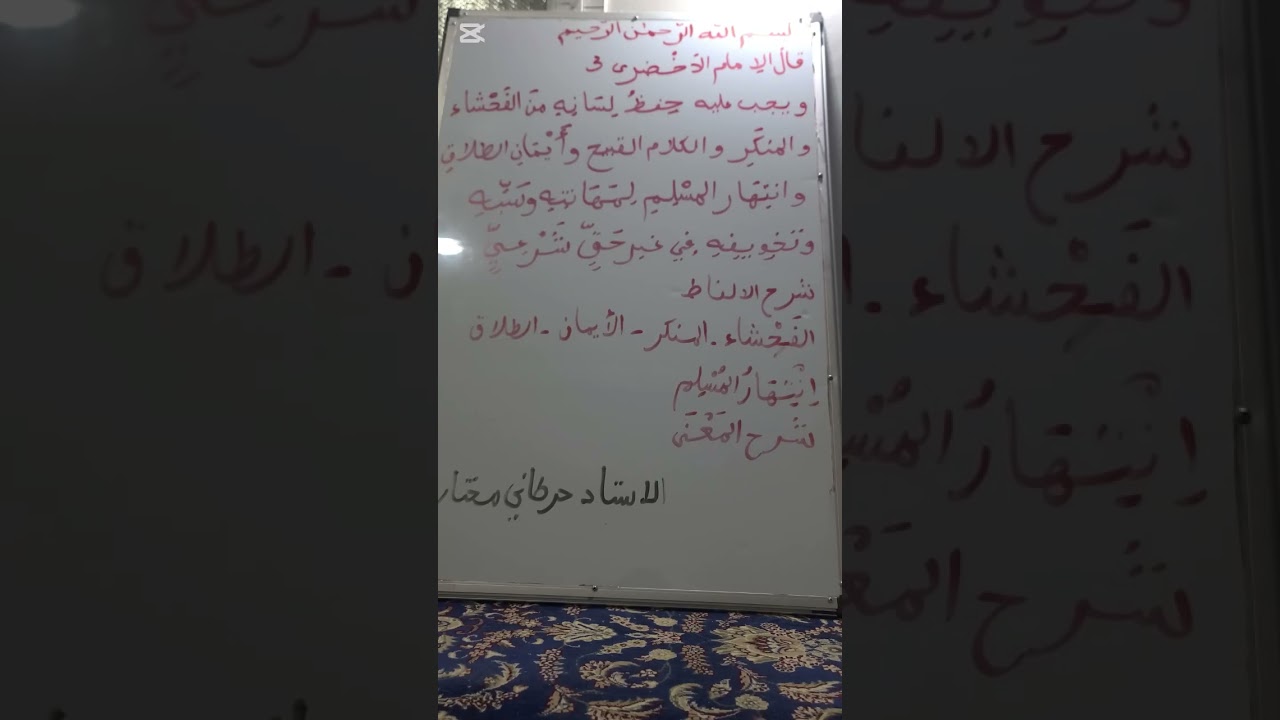 بسم الله الرّحمٰن الرّحيم
قال الإمام الأخْضري 3
ويجب عليه حِفظُ لِسَانِهِ مِنَ الفَحْشَاء
والمنكَرِ والكلام القبيح وأَيْمَانِ الطلاقِ
وانتِهَارِ المسْلِمِ لِمَهَانَتِهِ وسَبِّهِ
وتَخْوِيفِهِ فِي غيرِ حَقٍّ شَرْعِيٍّ
شرح الالفاظ
الفَحْشَاء - المنكر - الأيمان - الطلاق
اِنْتِهَارُ المُسْلِم
شَرح المَعْنَى
الاستاد حركاتي مختار